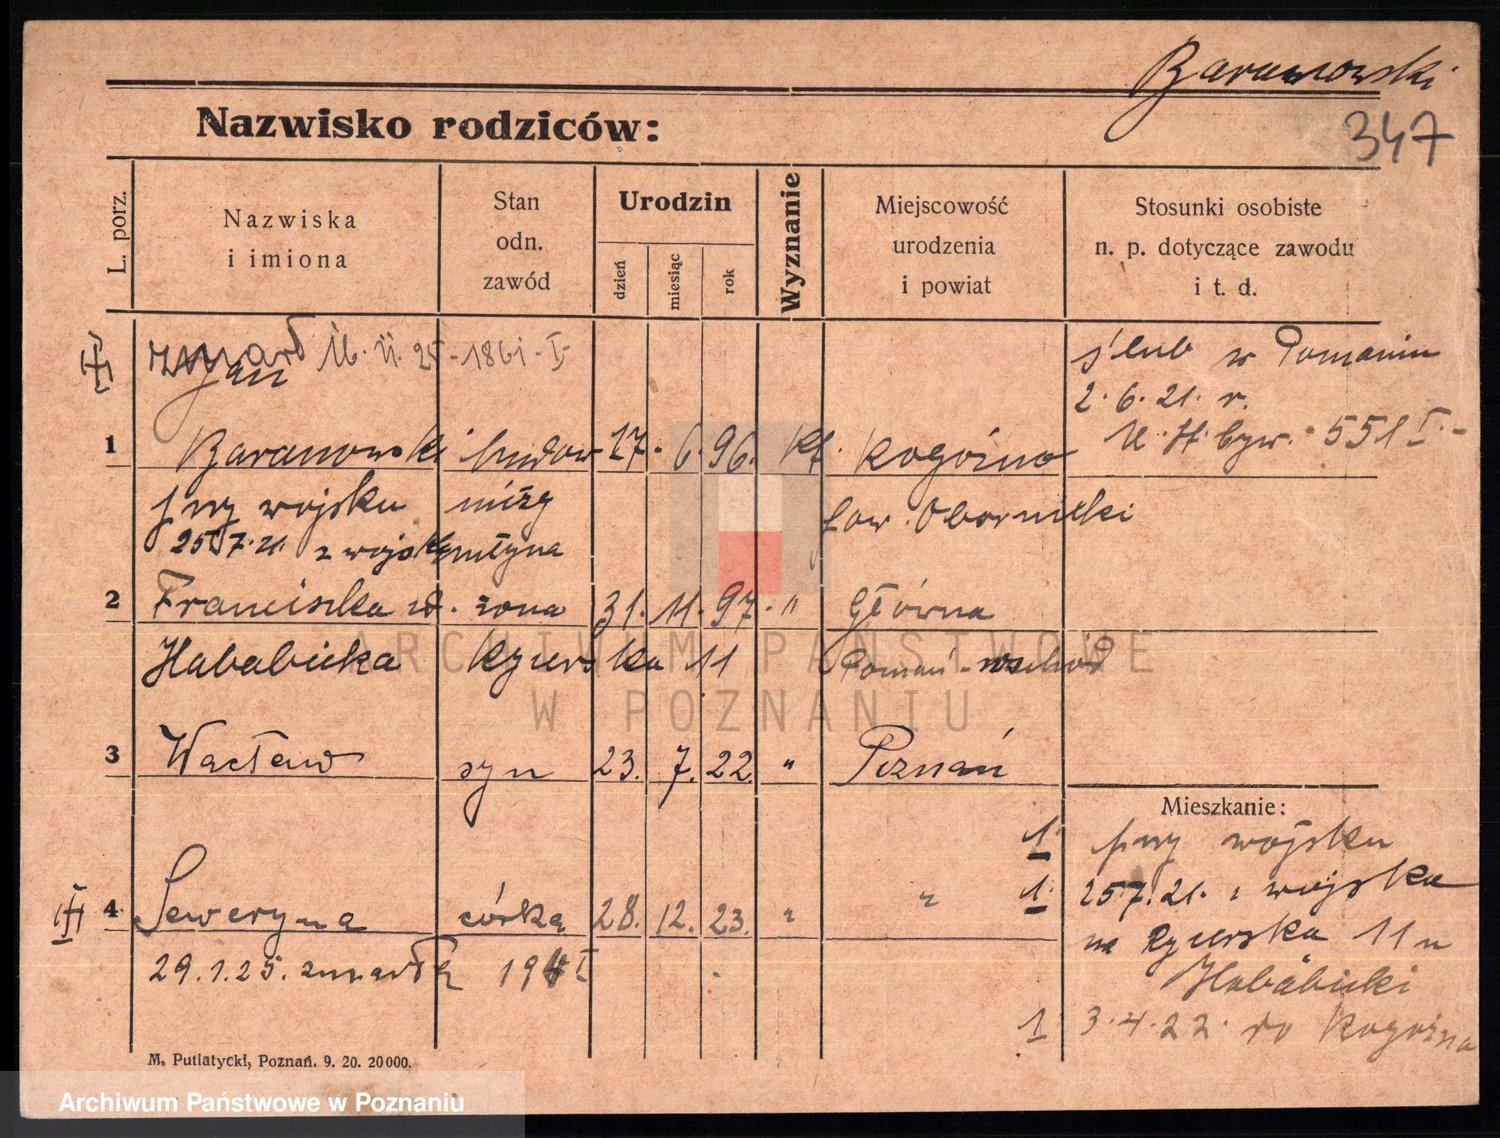 Baranowski
347
Nazwisko rodziców:
L. porz.
Nazwiska
i imiona
Stan
odn.
zawód
Urodzin
dzień
miesiąc
rok
Wyznanie
Miejscowość
urodzenia
i powiat
Stosunki osobiste
n. p. dotyczące zawodu
i t. d.
zmarł 16. 11. 25 - 1861 - I -
Jan
ślub w Poznaniu
2. 6. 21. r.
U. St. 551 I. -
1 Baranowski budow 27. 6. 96. Kt. Rogoźno
przy wojsku pow. Obornicki
25.7.21. z wojska młyna
2 Franciszka ur. żona 31. 11. 97. " Główna
Hababicka Kzierska 11 Poznań-wschód
3 Wacław syn 23. 7. 22. " Poznań
Mieszkanie:
1 przy wojsku
4 Seweryna córka 28. 12. 23. " " 1 25.7.21. z wojska
na Kzierska 11 u
29. 1. 25. zmarła 191 I
Hababicki
1 3. 4. 22. do Rogoźna
M. Putiatycki, Poznań. 9. 20. 20 000.
ARCHIWUM PAŃSTWOWE
W POZNANIU
Archiwum Państwowe w Poznaniu